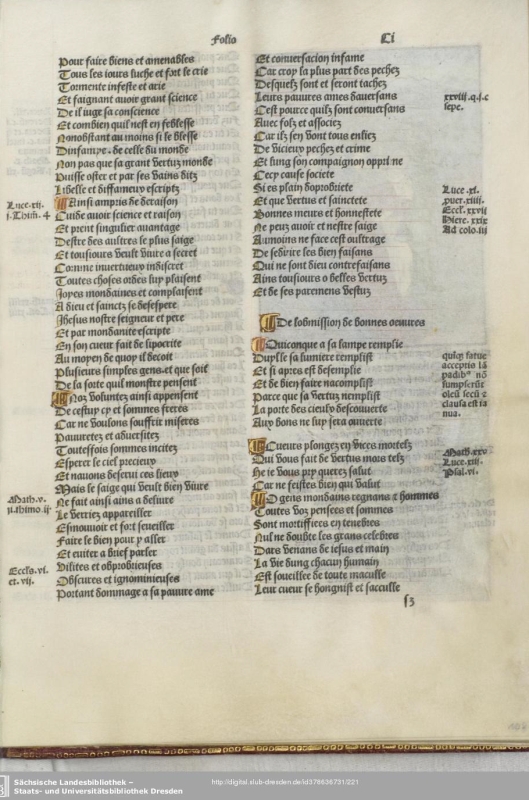 Folio
Ci
Pour faire biens et amenables
Tous les iours luche et fort le crie
Tormente infeste et arie
Et faignant auoir grant science
De il iuge sa conscience
Et combien quil nest en feblesse
Nonobstant au moins si le blesse
Dinfamye de celle du monde
Non pas que sa grant vertuz monde
Puisse oster et par ses vains ditz
Libelle et diffameux escriptz
Luce. xij.
i. Thim. 4
Ainsi ampris de deraison
Cuide auoir science et raison
Et prent singulier auantage
Destre des aultres le plus saige
Et tousiours veult viure a secret
Comme inuertueux indiscret
Toutes choses ordes luy plaisent
Joyes mondaines et complaisent
A dieu et sainctz se desespere
Jhesus nostre seigneur et pere
Et par mondanite escripte
En son cueur fait de lipocrite
Au moyen de quoy il decoit
Plusieurs simples gens et que soit
De la sorte quil monstre pensent
Noz voluntez ainsi appensent
De cestuy cy et sommes freres
Car ne voulons souffrir miseres
Pauuretez et aduersitez
Toutesfois sommes incitez
Esperer le ciel precieux
Et nauons deserui ces lieux
Mais le saige qui veult bien viure
Math. v.
ii. thimo. ij
Ne fait ainsi ains a desiure
Le verriez appareiller
Esmouuoir et fort sueiller
Faire le bien pour y aller
Et euiter a brief parler
Vilites et obprobrieuses
Eccls. vi.
et. vii.
Obscures et ignominieuses
Portant dommage a sa pauure ame
Et conuersacion infame
Car trop la plus part des pechez
Desquelz sont et seront tachez
Leurs pauures ames dauersans
xxviii. q. j. c
sepe.
Cest pource quilz sont conuersans
Auec folz et associez
Car ilz sen vont tous enliez
De vicieux pechez et crime
Et lung son compaignon opprime
Cecy cause societe
Si es plain dobprobriete
Luce. xl.
puer. xiiii.
Eccl. xxvii
Hiere. xxix
Ad colo. iii
Et que vertus et sainctete
Bonnes meurs et honnestete
Ne peuz auoir et nestre saige
Aumoins ne face cest oultrage
De sediure les bien faisans
Qui ne sont dieu contrefaisans
Ains tousiours o belles vertuz
Et de ses paremens vestuz
De lobmission de bonnes oeuures
Quiconque a sa lampe remplie
Duylle sa lumiere remplist
quinqz fatue
acceptis lã
padibus nõ
sumpserũt
oleũ secũ z
clausa est ia
nua.
Et si apres est desemplie
Et de bien faire nacomplist
Parce que sa vertuz nemplist
La porte des cieulx descouuerte
Aux bons ne luy sera ouuerte
Cueurs plongez en vices mortelz
Math. xxv
Luce. xii.
Psal. vi.
Qui vous fait de vertus mais telz
He ie vous pry querez salut
Car ne feistes bien qui valut
O gens mondains regnans z hommes
Toutes voz pensees et sommes
Sont mortiffices en tenebres
Nul ne doubte les grans celebres
Dars venans de iesus et main
La vie dung chacun humain
Est souillee de toute maculle
Leur cueur se hongnist et sacculle
s3
Sächsische Landesbibliothek –
Staats- und Universitätsbibliothek Dresden
http://digital.slub-dresden.de/id378636731/221